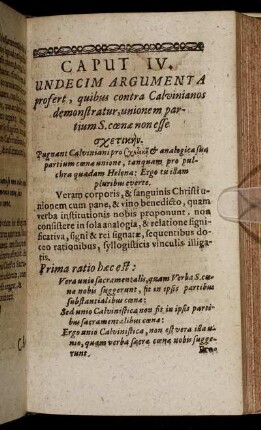 CAPUT IV.
UNDECIM ARGUMENTA
profert, quibus contra Calvinianos
demonstratur, unionem par-
tium S. cœnæ non esse
σχετικήν.
Pugnant Calviniani pro & analogica sua
partium cœnæ unione, tanquam pro pul-
chra quadam Helena: Ergo tu illam
pluribus everte.
Veram corporis, & sanguinis Christi u-
nionem cum pane, & vino benedicto, quam
verba institutionis nobis proponunt, non
consistere in sola analogia, & relatione signi-
ficativa, signi & rei signatæ, sequentibus do-
ceo rationibus, syllogisticis vinculis illiga-
tis.
Prima ratio hæc est:
Vera unio sacramentalis, quam Verba S. cœ-
næ nobis suggerunt, fit in ipsis partibus
substantialibus cœnæ:
Sed unio Calvinistica non fit in ipsis parti-
bus sacramentalibus cœnæ:
Ergo unio Calvinistica, non est vera illa u-
nio, quam verba sacræ cœnæ nobis sugge-
runt.